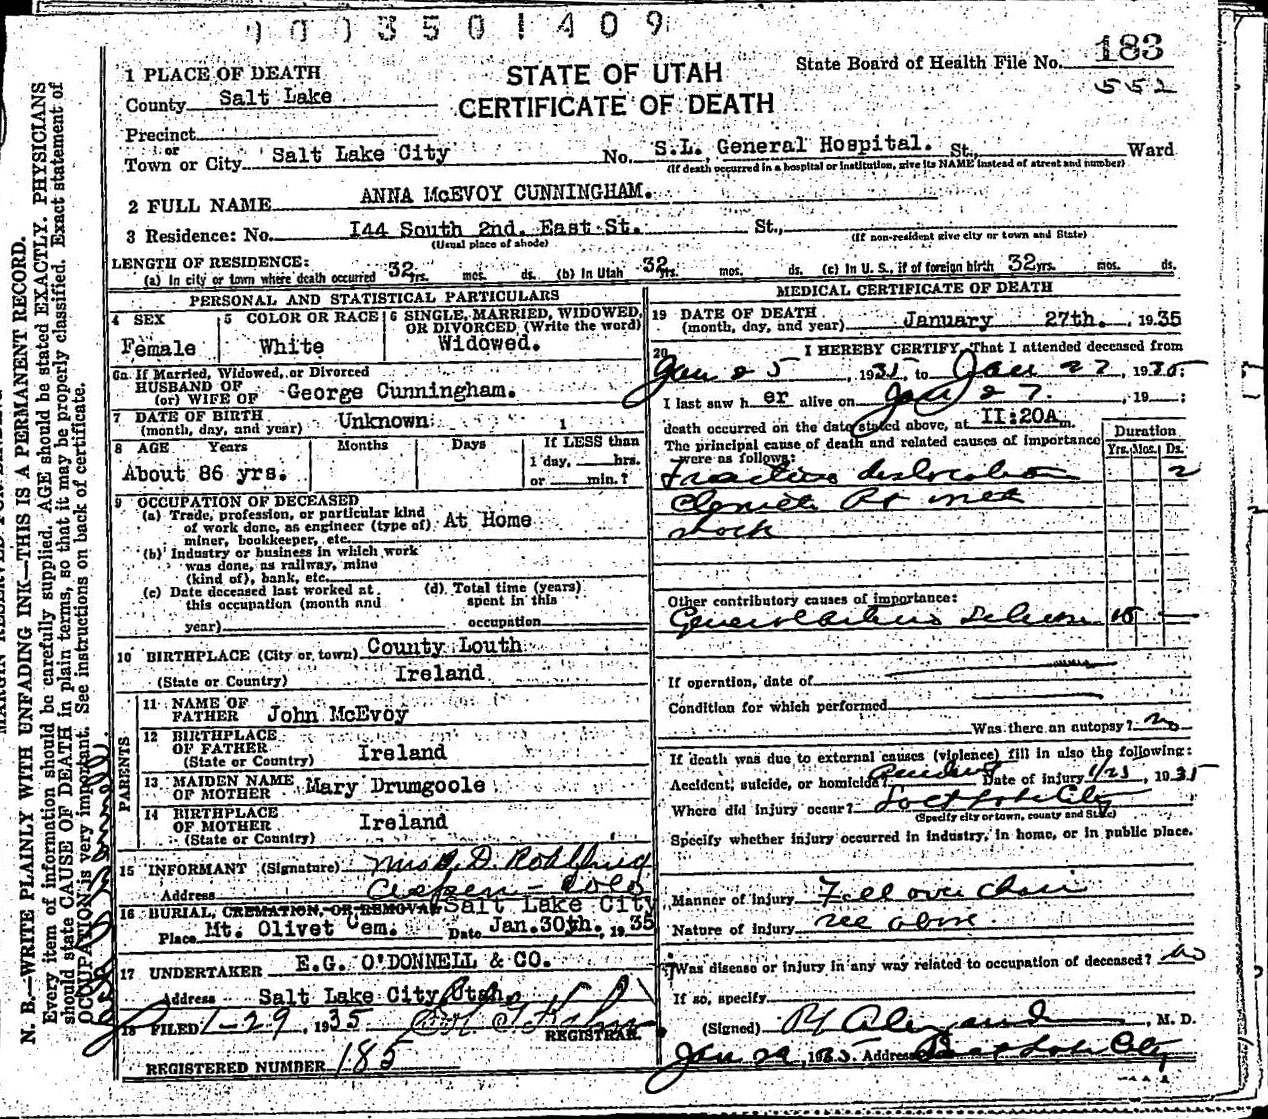 0003501409
1 PLACE OF DEATH
STATE OF UTAH
CERTIFICATE OF DEATH
State Board of Health File No. 183
552
County Salt Lake
Precinct
or
Town or City Salt Lake City No. S.L. General Hospital. St., Ward
(If death occurred in a hospital or institution, give its NAME instead of street and number)
2 FULL NAME ANNA McEVOY CUNNINGHAM.
3 Residence: No. I44 South 2nd. East St. St.,
(Usual place of abode) (If non-resident give city or town and State)
LENGTH OF RESIDENCE:
(a) In city or town where death occurred 32 yrs. mos. ds. (b) In Utah 32 yrs. mos. ds. (c) In U. S., if of foreign birth 32 yrs. mos. ds.
PERSONAL AND STATISTICAL PARTICULARS
4 SEX
Female
5 COLOR OR RACE
White
6 SINGLE, MARRIED, WIDOWED, OR DIVORCED (Write the word)
Widowed.
6a If Married, Widowed, or Divorced
HUSBAND OF
(or) WIFE OF George Cunningham.
7 DATE OF BIRTH
(month, day, and year) Unknown
8 AGE Years Months Days If LESS than
1 day, hrs.
or min.?
About 86 yrs.
9 OCCUPATION OF DECEASED
(a) Trade, profession, or particular kind
of work done, as engineer (type of)
miner, bookkeeper, etc. At Home
(b) Industry or business in which work
was done, as railway, mine
(kind of), bank, etc.
(c) Date deceased last worked at
this occupation (month and
year)
(d) Total time (years)
spent in this
occupation
10 BIRTHPLACE (City or town) County Louth
(State or Country) Ireland
PARENTS
11 NAME OF
FATHER John McEvoy
12 BIRTHPLACE
OF FATHER
(State or Country) Ireland
13 MAIDEN NAME
OF MOTHER Mary Drumgoole
14 BIRTHPLACE
OF MOTHER
(State or Country) Ireland
15 INFORMANT (Signature) Mrs D.
Address Aspen - Colo
16 BURIAL, CREMATION, OR REMOVAL Salt Lake City
Place Mt. Olivet Cem. Date Jan.30th. 1935
17 UNDERTAKER E.G. O'DONNELL & CO.
Address Salt Lake City Utah.
18 FILED 1-29, 1935
REGISTRAR.
REGISTERED NUMBER 185
MEDICAL CERTIFICATE OF DEATH
19 DATE OF DEATH
(month, day, and year) January 27th. 1935
20 I HEREBY CERTIFY, That I attended deceased from
Jan 25, 1935, to Jan 27, 1935;
I last saw her alive on Jan 27, 19 ;
death occurred on the date stated above, at II:20A m.
The principal cause of death and related causes of importance
were as follows:
Duration
Yrs. Mos. Ds.
Fracture dislocation 2
shock
Other contributory causes of importance:
15
If operation, date of
Condition for which performed
Was there an autopsy? no
If death was due to external causes (violence) fill in also the following:
Accident, suicide, or homicide? Accident Date of injury 1/25, 1935
Where did injury occur? Salt Lake City
(Specify city or town, county and State)
Specify whether injury occurred in industry, in home, or in public place.
Manner of injury Fell over chair
Nature of injury see above.
Was disease or injury in any way related to occupation of deceased? no
If so, specify
(Signed) , M. D.
Address Salt Lake City
N. B.—WRITE PLAINLY WITH UNFADING INK—THIS IS A PERMANENT RECORD.
Every item of information should be carefully supplied. AGE should be stated EXACTLY. PHYSICIANS
should state CAUSE OF DEATH in plain terms, so that it may be properly classified. Exact statement of
OCCUPATION is very important. See instructions on back of certificate.